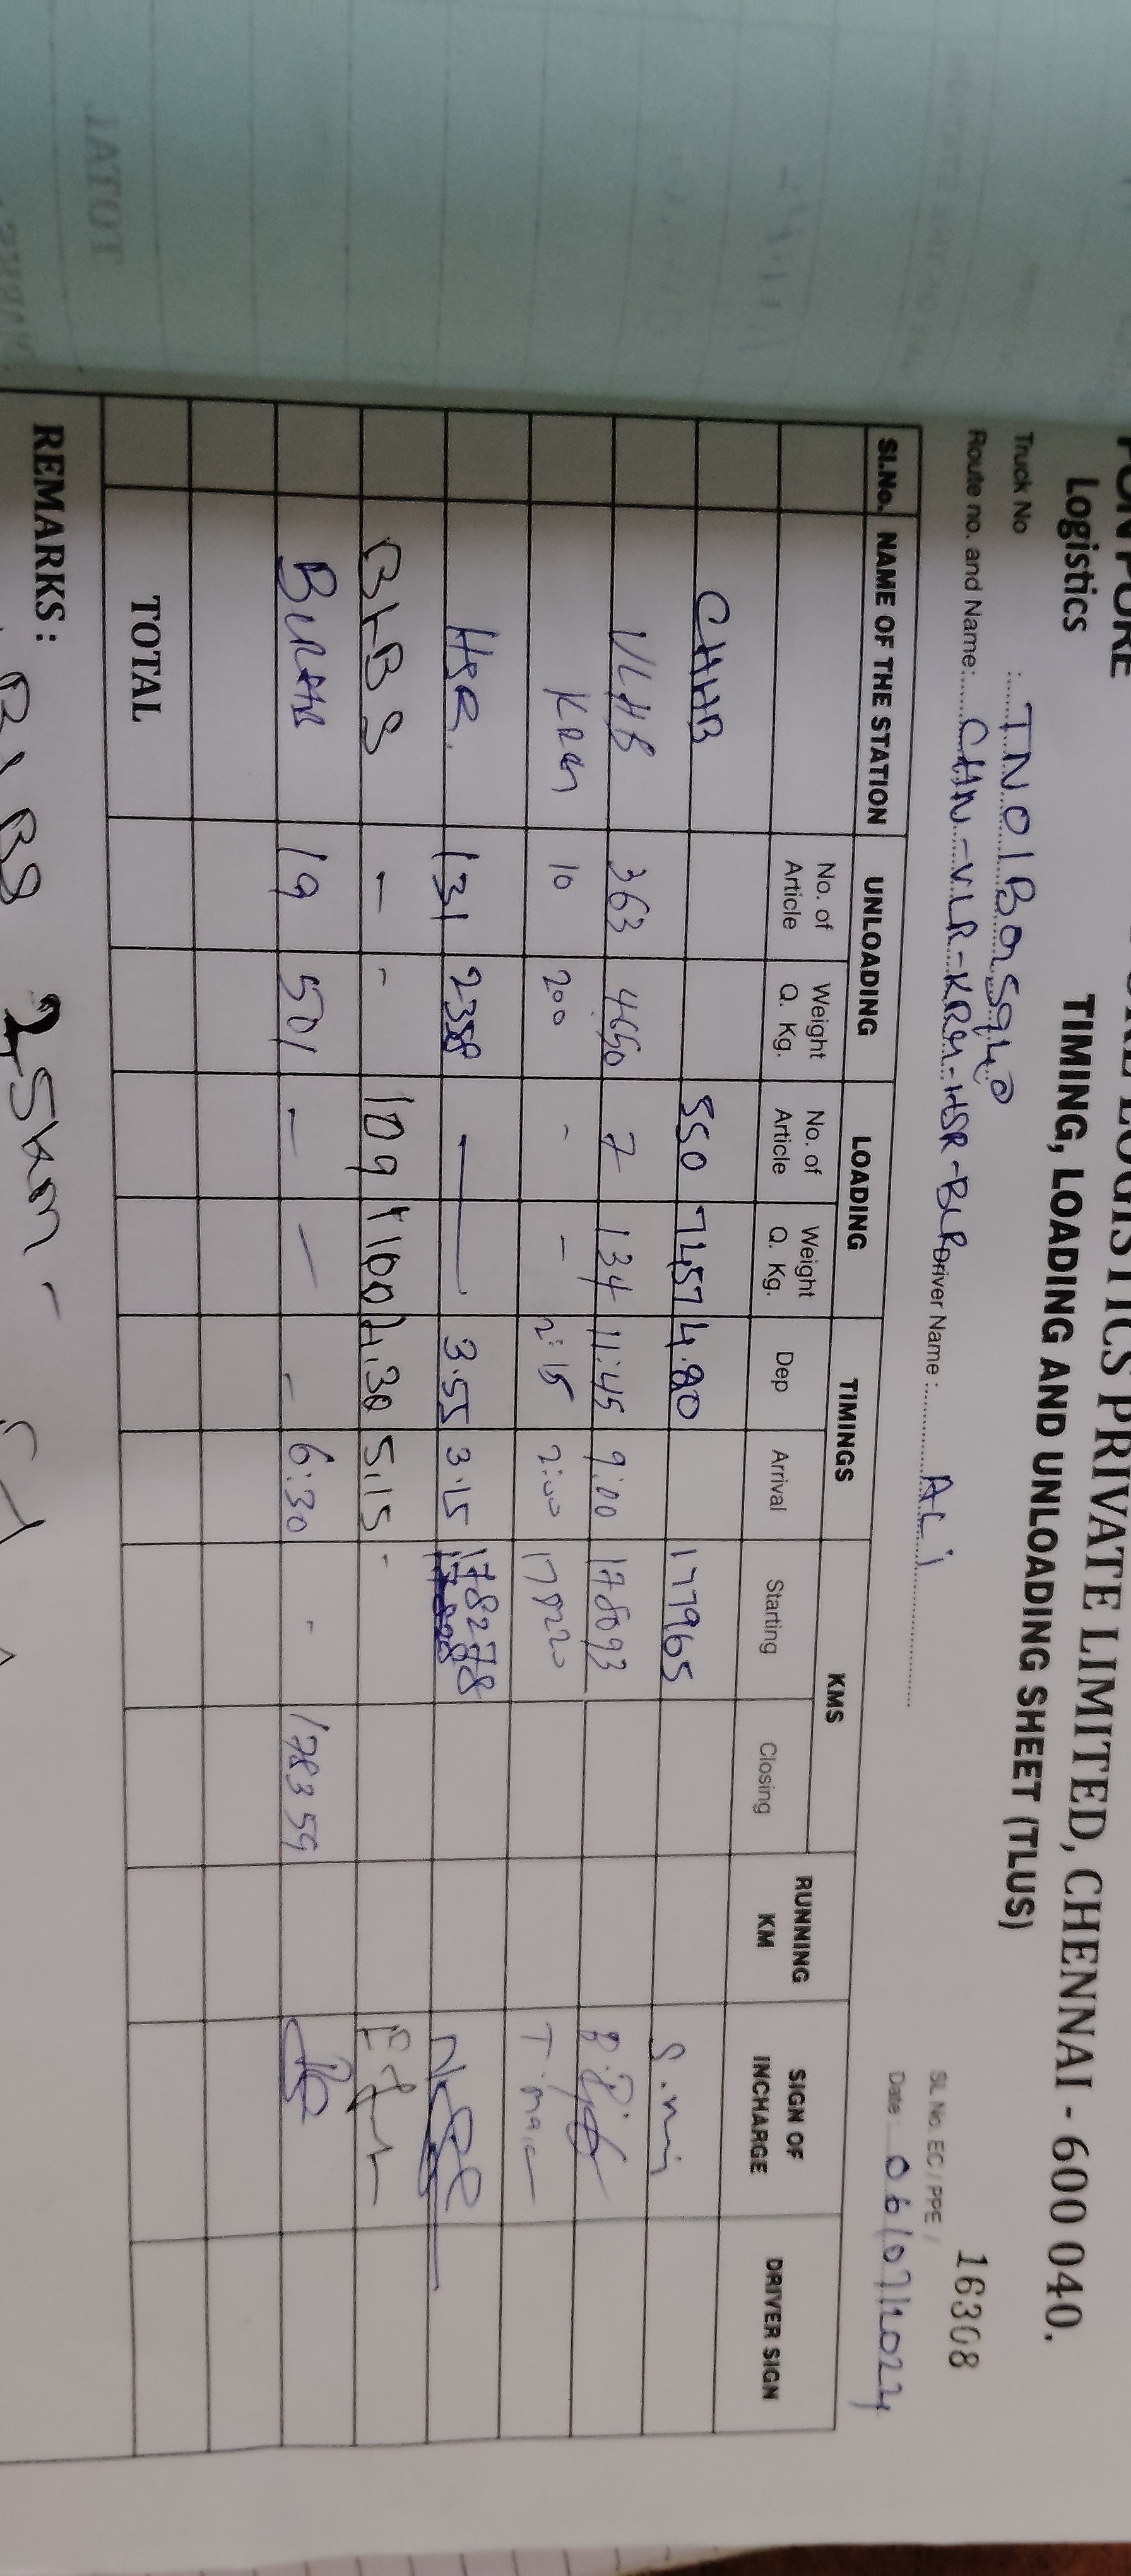 PONPURE LOGISTICS PRIVATE LIMITED, CHENNAI - 600 040.
Logistics
TIMING, LOADING AND UNLOADING SHEET (TLUS)
SL No. EC / PPE / 16308
Truck No
Date : 06/07/2024
Route no. and Name: CHN-VLR-KRG-HSR-BLR Driver Name : ALi
SI.No. NAME OF THE STATION UNLOADING LOADING TIMINGS KMS RUNNING KM SIGN OF INCHARGE DRIVER SIGN
No. of Article Weight Q. Kg. No. of Article Weight Q. Kg. Dep Arrival Starting Closing
CHHB 550 7457 177965
VLHB 363 4650 7 134 11:45 9:00 178093
10 200 - - 2:15 2:00 178220
HSR. 131 2358 — 3.55 3.15 178278
BLBS - - 109 5.15 -
BLRHB 19 501 - - - 6:30 - 178359
TOTAL
REMARKS : BLBS